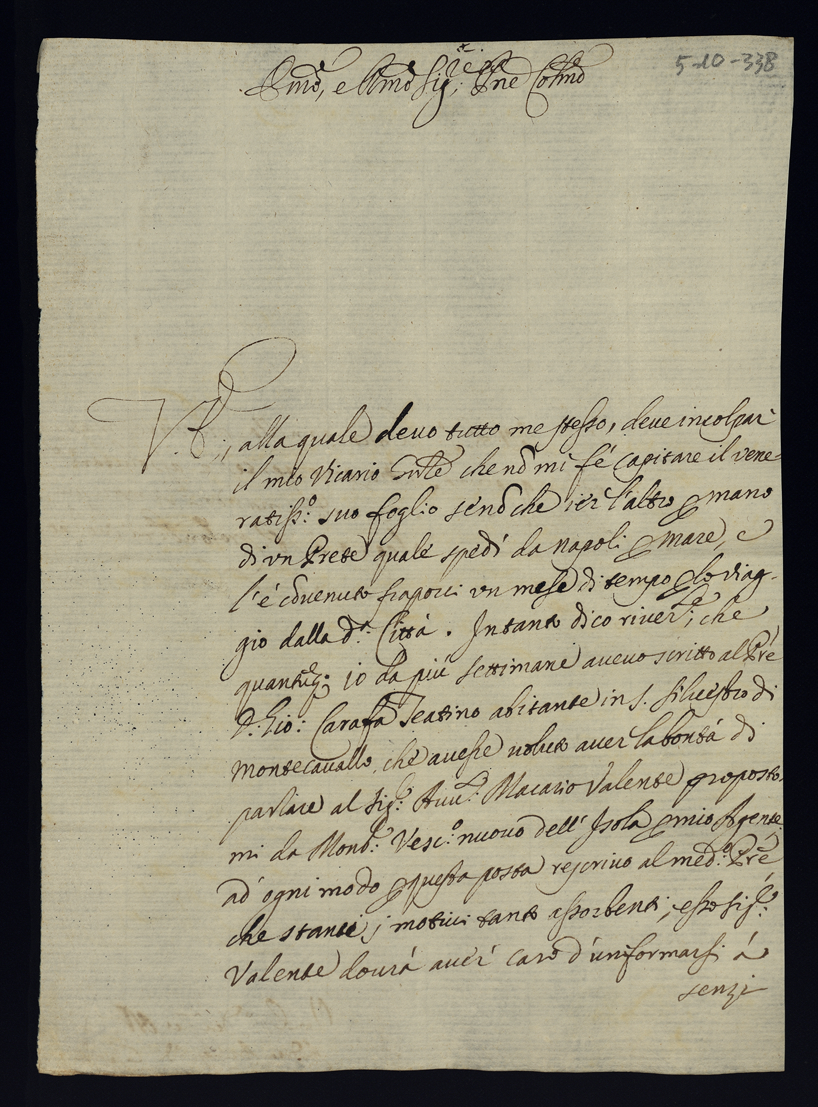 5-10-338
Illmo, e Rmo Sigre, Pne Colmo
V.E., alla quale devo tutto me stesso, deve incolpar
il mio Vicario Gnle che nō mi fé capitare il vene=
ratiss:o suo foglio senō che ier l'altro p mano
di un Prete quale spedì da Napoli p mare, e
l'é cōvenuto fraporci un mese di tempo p lo viag-
gio dalla d.a Città. Intanto dico river:te, che
io da più settimane avevo scritto al Pre
D. Gio: Caraffa Teatino abitante in S. Silvestro di
Montecavallo, che avesse voluto aver la bontá di
parlare al Sig.r Avv.o Macario Valente proposto
mi da Mons.r Vesc.o nuovo dell'Isola p mio Agente
ad ogni modo p questa posta rescrivo al med.o Pre
che stanti j motivi tanto assorbenti, esso Sig.r
Valente dourá aver caro d'uniformarsi á
senzi